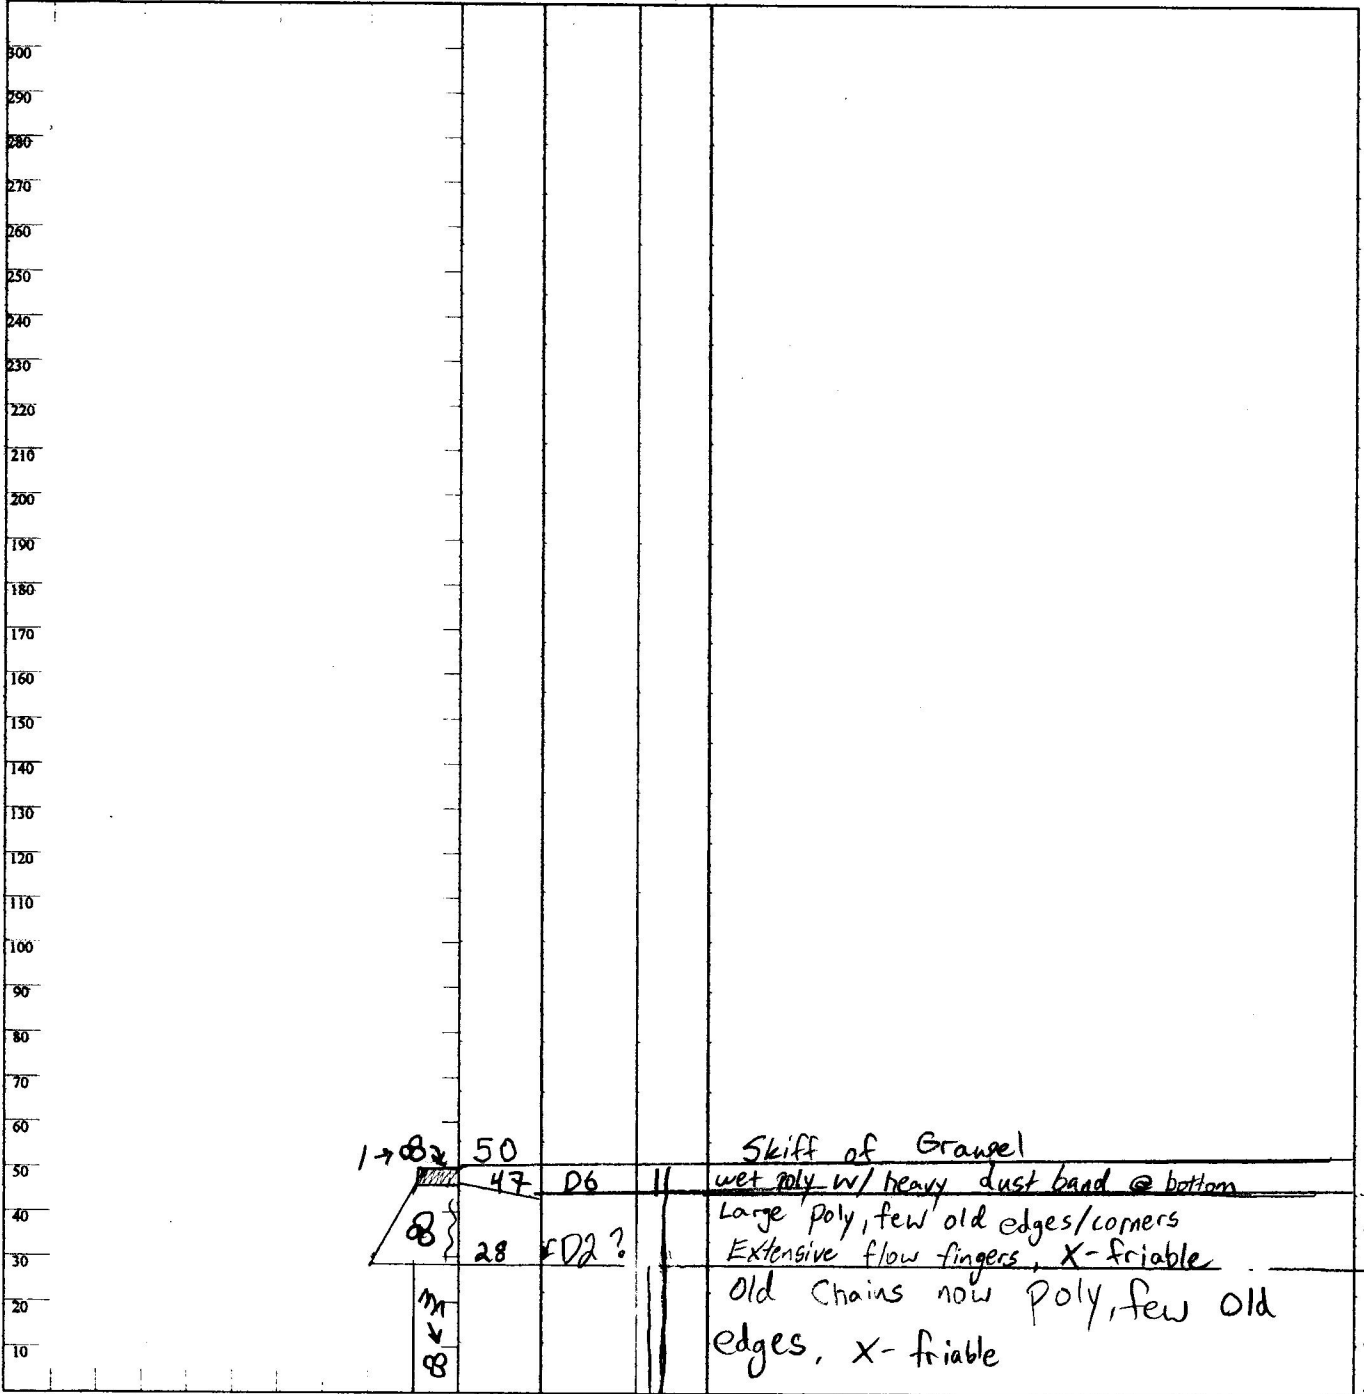 300
290
280
270
260
250
240
230
220
210
200
190
180
170
160
150
140
130
120
110
100
90
80
70
60
50 Skiff of Graupel
50
47 D6 wet poly w/ heavy dust band @ bottom
40
Large poly, few old edges/corners
30 28 D2? Extensive flow fingers, X-friable
20 Old Chains now poly, few old
10 edges, X-friable